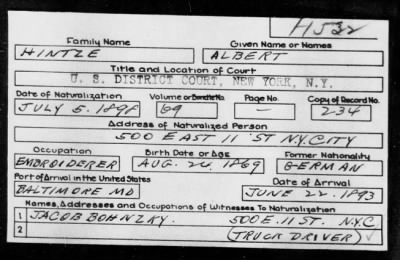 H532
Family Name
Given Name or Names
HINTZE
ALBERT
Title and Location of Court
U. S. DISTRICT COURT, NEW YORK, N.Y.
Date of Naturalization
Volume or Bundle No.
Page No.
Copy of Record No.
JULY 5. 1898
69
—
234
Address of Naturalized Person
500 EAST 11 ST N.Y. CITY
Occupation
Birth Date or Age
Former Nationality
EMBROIDERER
AUG. 24, 1869
GERMAN
Port of Arrival in the United States
Date of Arrival
BALTIMORE MD
JUNE 22. 1893
Names, Addresses and Occupations of Witnesses To Naturalization
1 JACOB BOHNZKY. 500 E. 11 ST. N.Y.C
2 (TRUCK DRIVER)